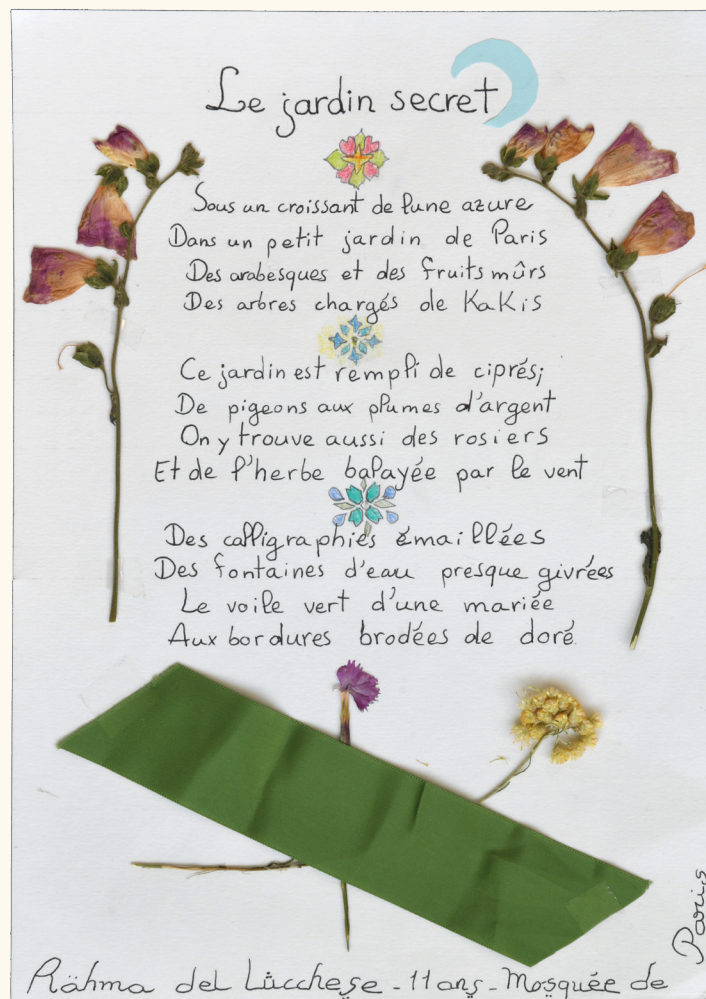 Le jardin secret
Sous un croissant de lune azure
Dans un petit jardin de Paris
Des arabesques et des fruits mûrs
Des arbres chargés de KaKis
Ce jardin est rempli de ciprés;
De pigeons aux plumes d'argent
On y trouve aussi des rosiers
Et de l'herbe balayée par le vent
Des calligraphies émaillées
Des fontaines d'eau presque givrées
Le voile vert d'une mariée
Aux bordures brodées de doré
Rähma del Lücchese - 11 ans - Mosquée de Paris